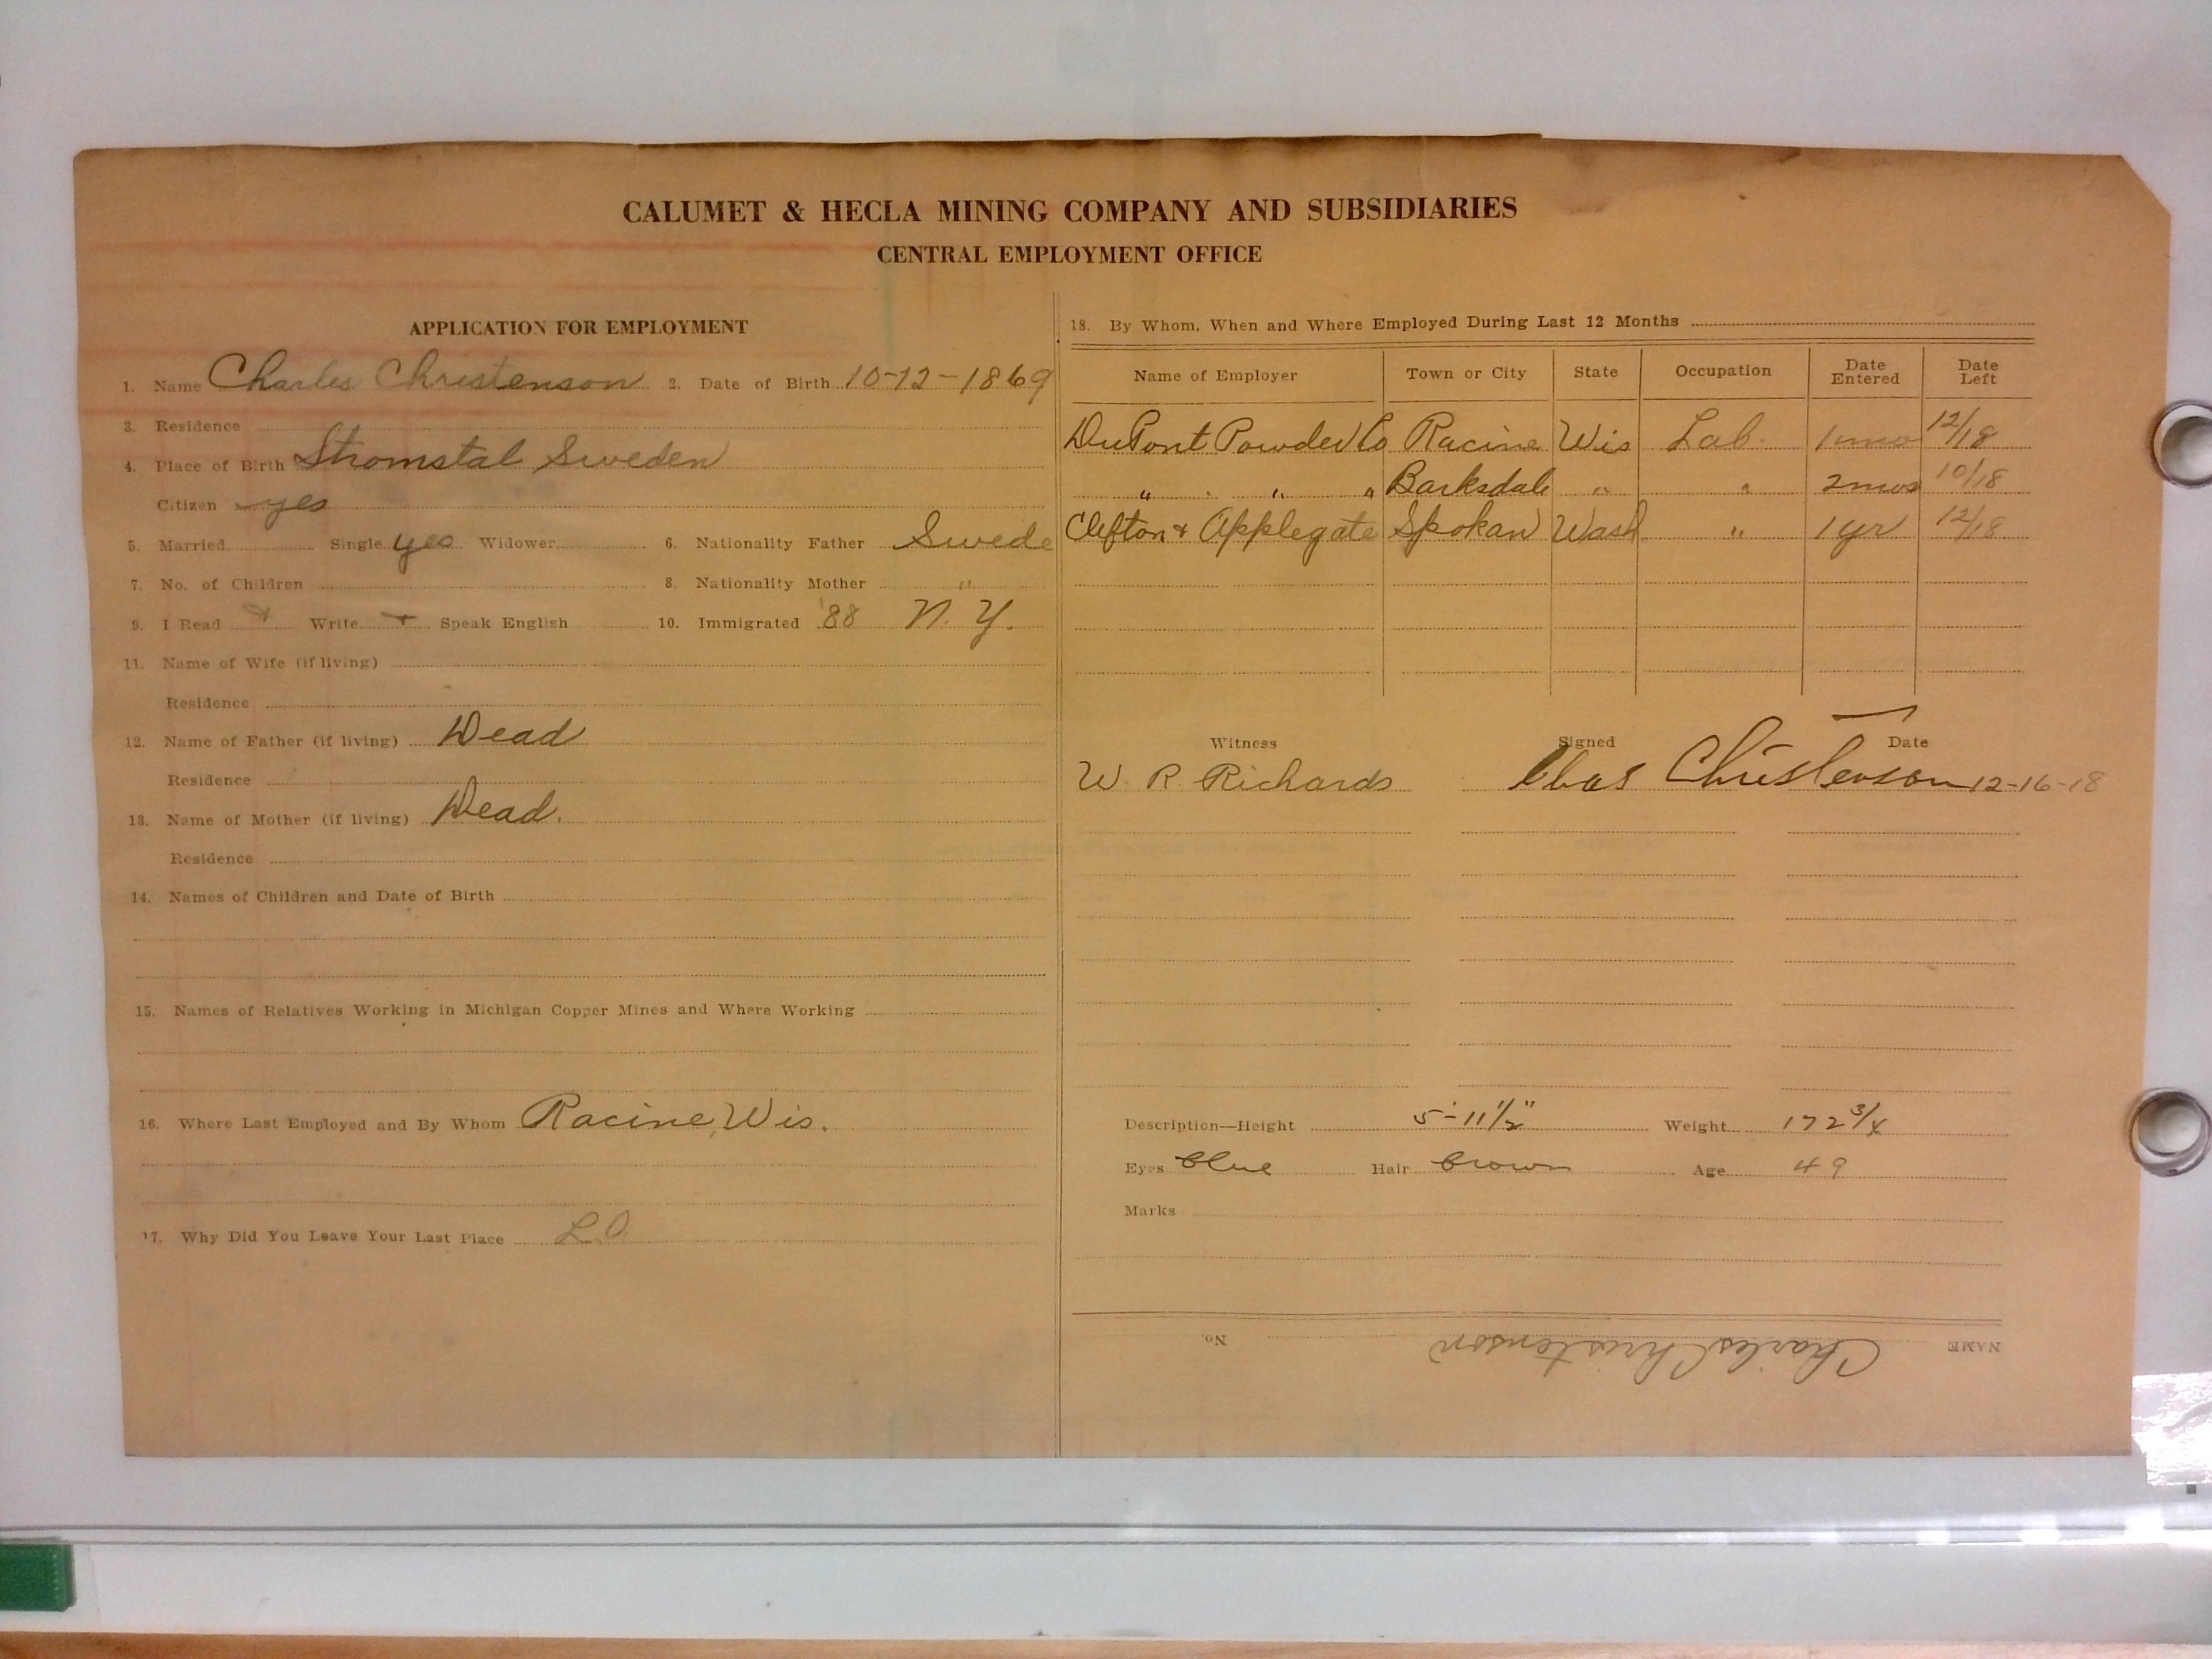 CALUMET & HECLA MINING COMPANY AND SUBSIDIARIES
CENTRAL EMPLOYMENT OFFICE
APPLICATION FOR EMPLOYMENT
1. Name Charles Christenson 2. Date of Birth 10-12-1869
3. Residence
4. Place of Birth Stromstal Sweden
Citizen yes
5. Married Single yes Widower 6. Nationality Father Swede
7. No. of Children 8. Nationality Mother "
9. I Read + Write + Speak English 10. Immigrated '88 N.Y.
11. Name of Wife (if living)
Residence
12. Name of Father (if living) Dead
Residence
13. Name of Mother (if living) Dead.
Residence
14. Names of Children and Date of Birth
15. Names of Relatives Working in Michigan Copper Mines and Where Working
16. Where Last Employed and By Whom Racine, Wis.
17. Why Did You Leave Your Last Place L.O
18. By Whom, When and Where Employed During Last 12 Months
Name of Employer Town or City State Occupation Date Entered Date Left
DuPont Powder Co Racine Wis Lab. 1 mo 12/18
" " " Barksdale " " 2 mos 10/18
Clefton & Applegate Spokan Wash " 1 yr 12/18
Witness Signed Date
W. R. Richards Chas Christenson 12-16-18
Description—Height 5'-11 1/2" Weight 172 3/4
Eyes blue Hair brown Age 49
Marks
NAME Charles Christenson No.